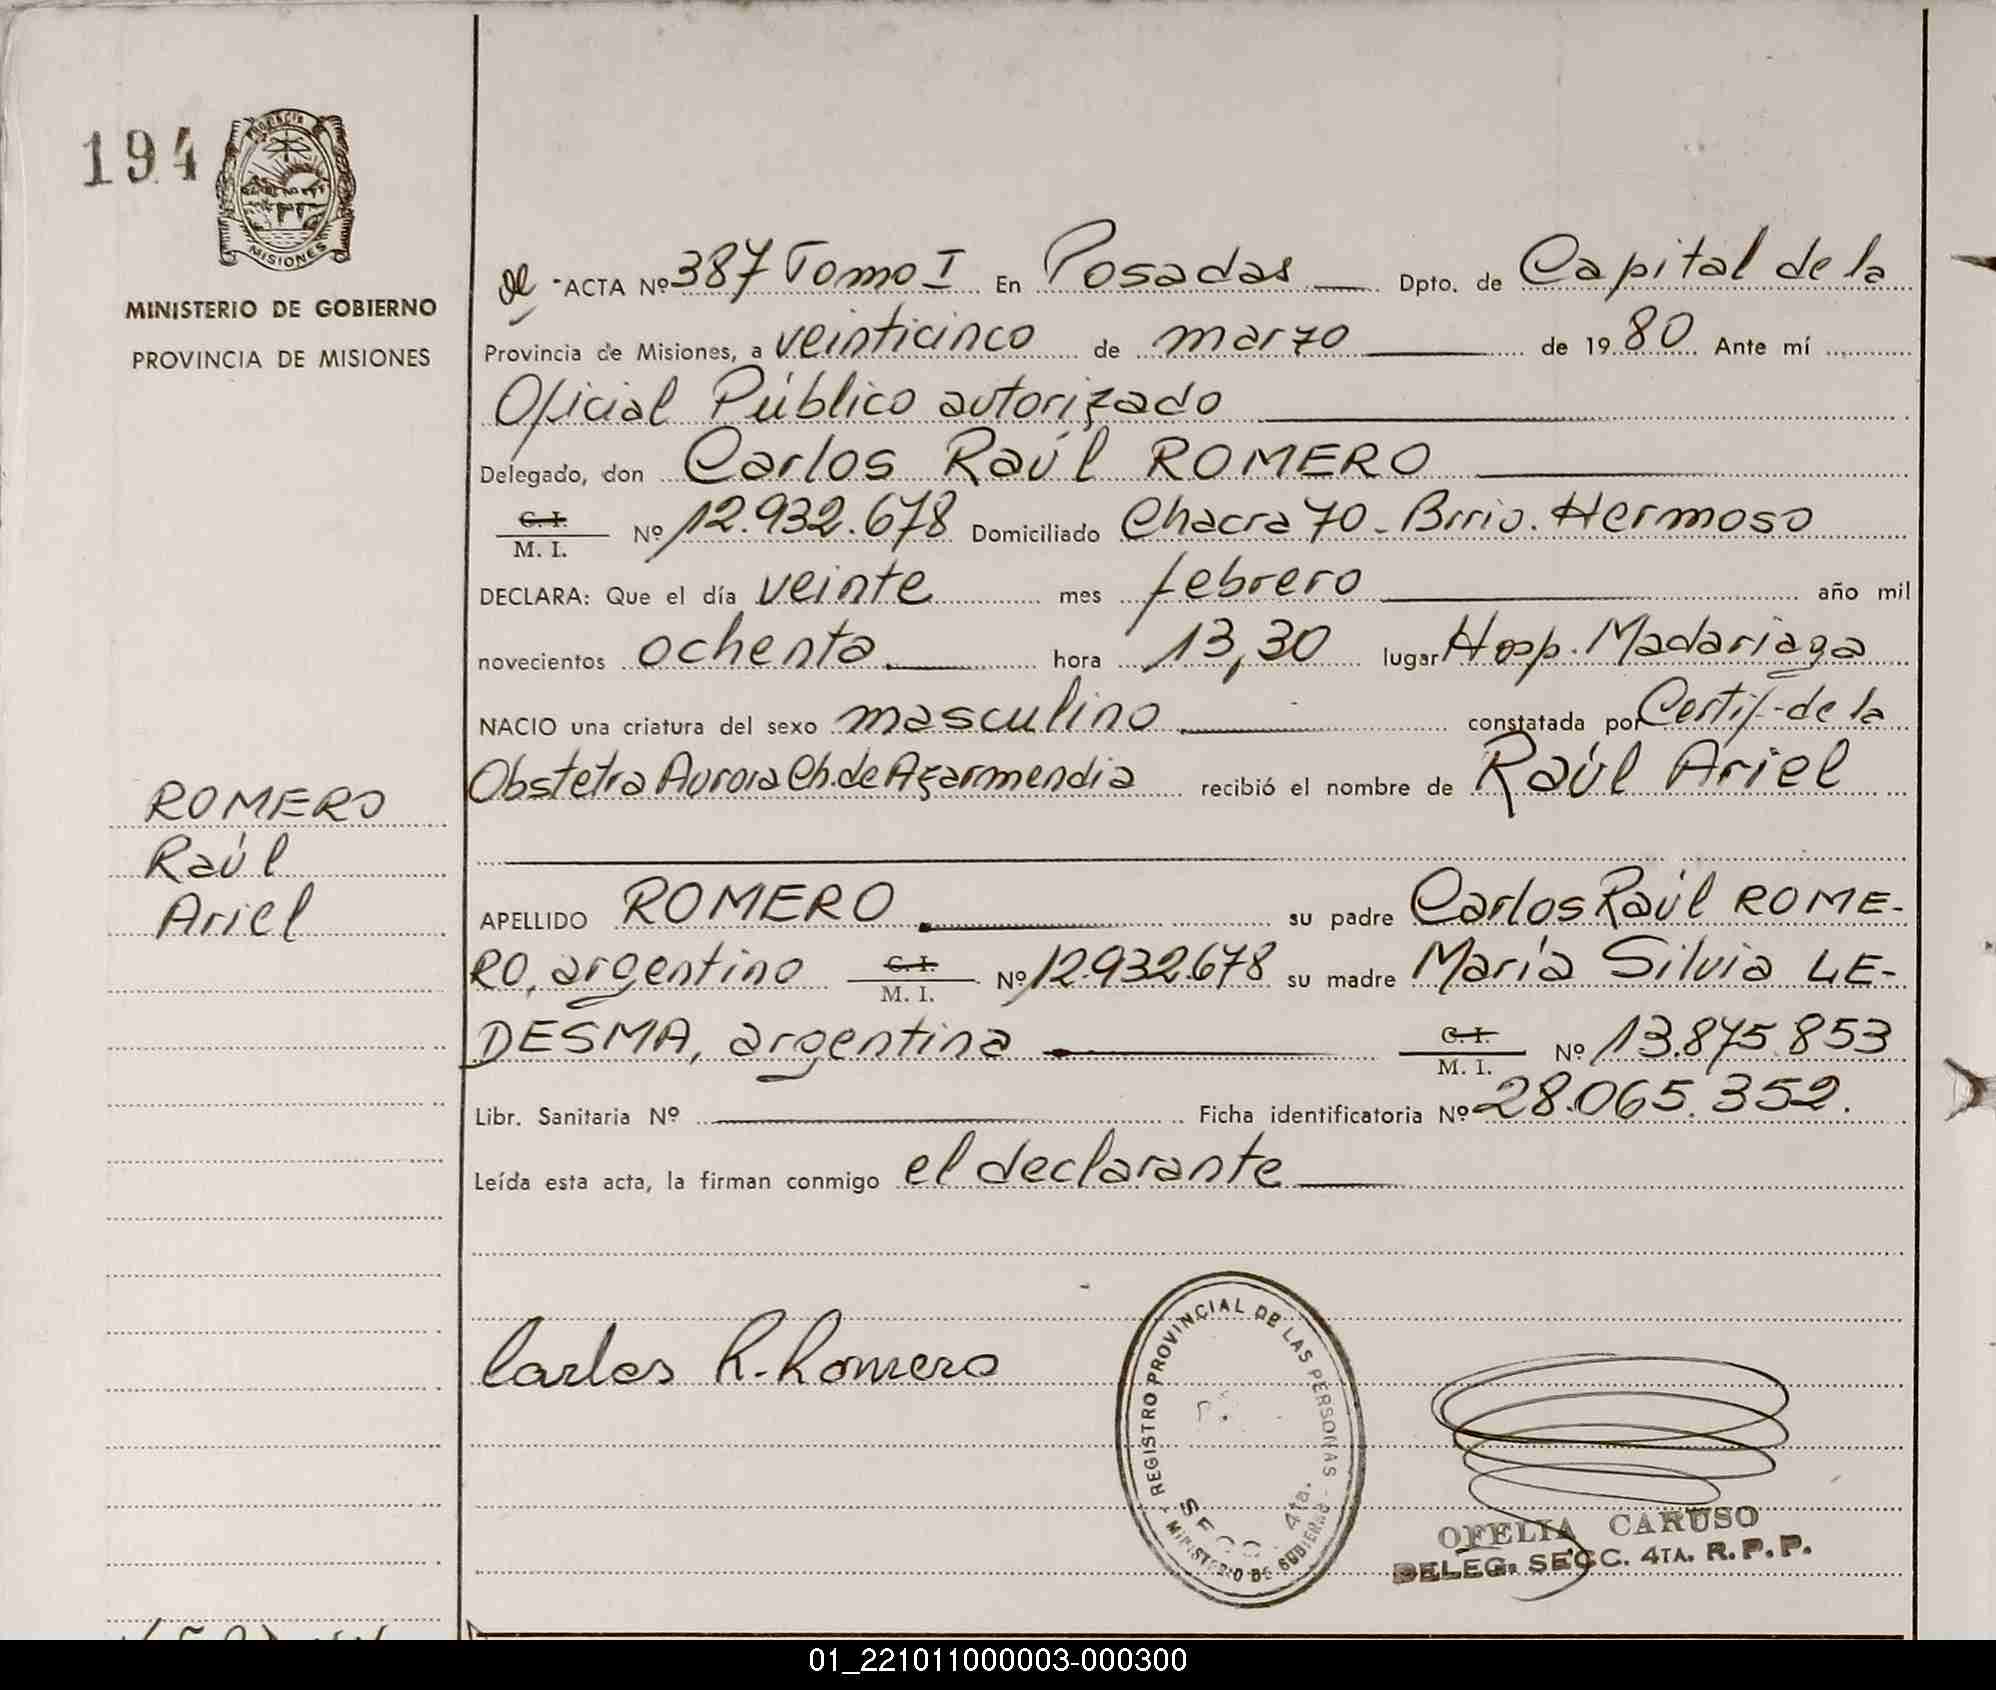 194
PROVINCIA
MISIONES
MINISTERIO DE GOBIERNO
PROVINCIA DE MISIONES
ACTA Nº 387 Tomo I En Posadas Dpto. de Capital de la
Provincia de Misiones, a veinticinco de marzo de 1980 Ante mí
Oficial Público autorizado
Delegado, don Carlos Raúl ROMERO
C. I.
M. I. Nº 12.932.678 Domiciliado Chacra 70 - Brrio. Hermoso
DECLARA: Que el día veinte mes febrero año mil
novecientos ochenta hora 13,30 lugar Hosp. Madariaga
NACIO una criatura del sexo masculino constatada por Certif. de la
Obstetra Aurora Ch. de Azarmendia recibió el nombre de Raúl Ariel
ROMERO
Raúl
Ariel
APELLIDO ROMERO su padre Carlos Raúl ROME-
RO, argentino C. I. M. I. Nº 12.932.678 su madre María Silvia LE-
DESMA, argentina C. I. M. I. Nº 13.875.853
Libr. Sanitaria Nº Ficha identificatoria Nº 28.065.352.
Leída esta acta, la firman conmigo el declarante
Carlos R. Romero
REGISTRO PROVINCIAL DE LAS PERSONAS
SECC. 4ta.
MINISTERIO DE GOBIERNO
OFELIA CARUSO
DELEG. SECC. 4TA. R.P.P.
01_221011000003-000300